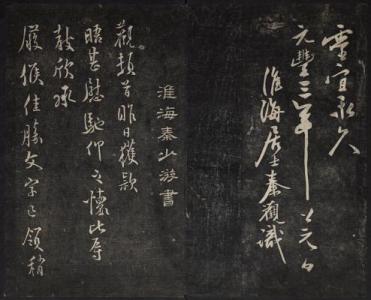 灵宜永久
元豐三年
淮海居士秦觀識
淮海秦少游書
觀頓首昨日獲款
晤甚慰馳仰之懷此辱
教欣承
履候佳勝文字已領稍